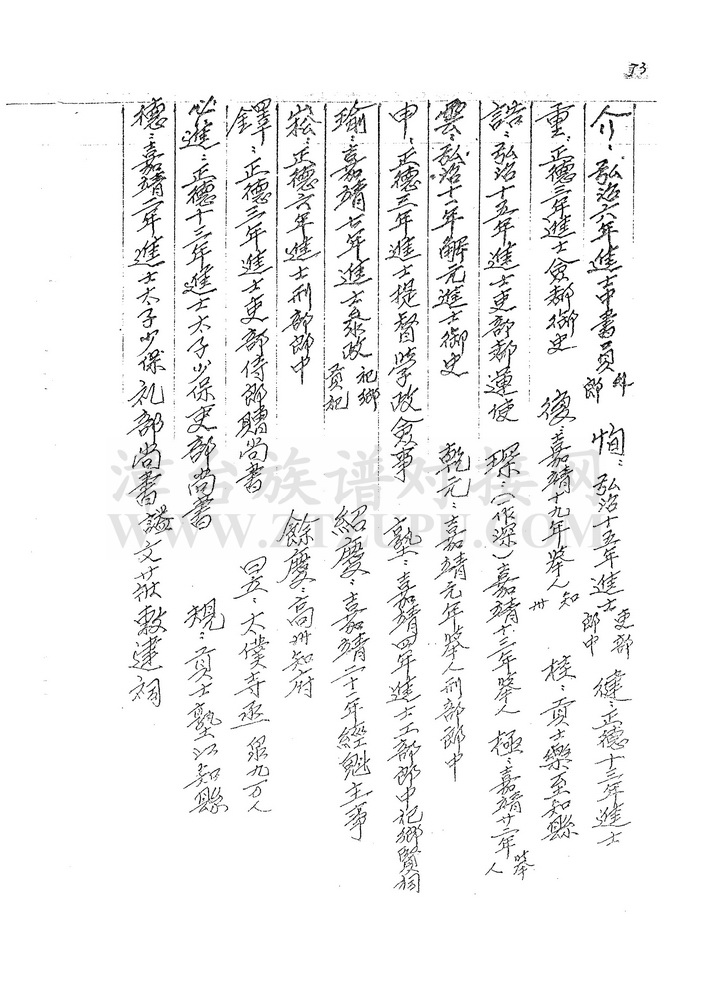 53
介：弘治六年進士中書員外郎 恂：弘治十五年進士吏部郎中 健：正德十三年進士
重：正德三年進士僉都御史 復：嘉靖十九年舉人知州 桂：貢士樂至知縣
誥：弘治十五年進士吏部都運使 琛：（作深）嘉靖十三年舉人 極：嘉靖廿二年舉人
雲：弘治十一年解元進士御史 乾元：嘉靖元年舉人刑部郎中
申：正德三年進士提督學政僉事 塾：嘉靖四年進士工部郎中祀鄉賢祠
瑜：嘉靖七年進士參政祀鄉賢祀 紹慶：嘉靖二十一年經魁主事
崧：正德六年進士刑部郎中 餘慶：高州知府
鐸：正德三年進士吏部侍郎贈尚書 太僕寺丞
進：正德十三年進士太子少保吏部尚書 規：貢士 知縣
德：嘉靖二年進士太子少保礼部尚書諡文莊敕建祠
漳台族谱对接网
WWW.ZTZUPU.COM